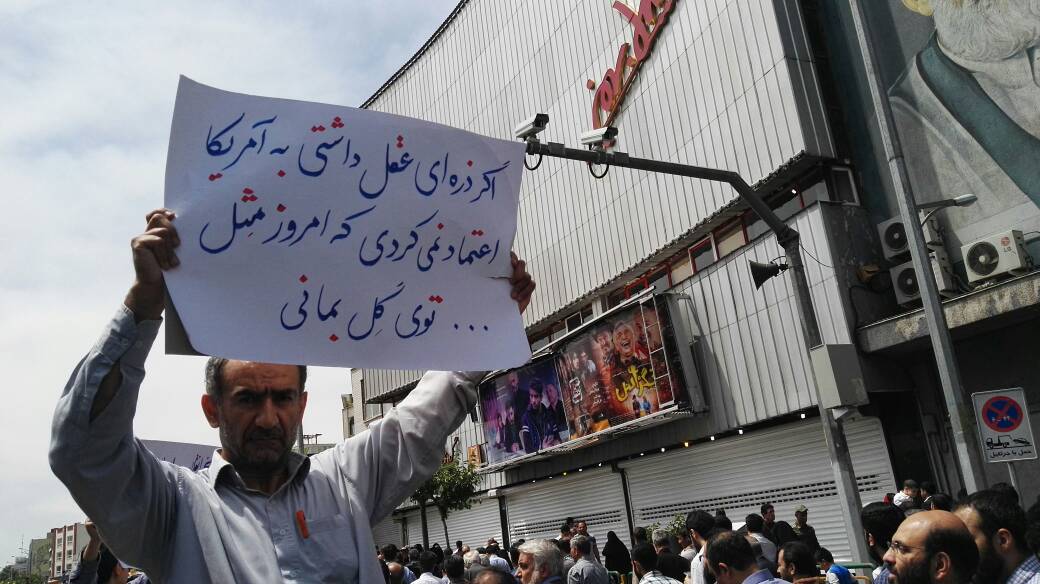 اگر ذره ای عقل داشتی به آمریکا
اعتماد نمی کردی که امروز مثِل
... توی گِل بمانی
LG
حمل با جرثقیل